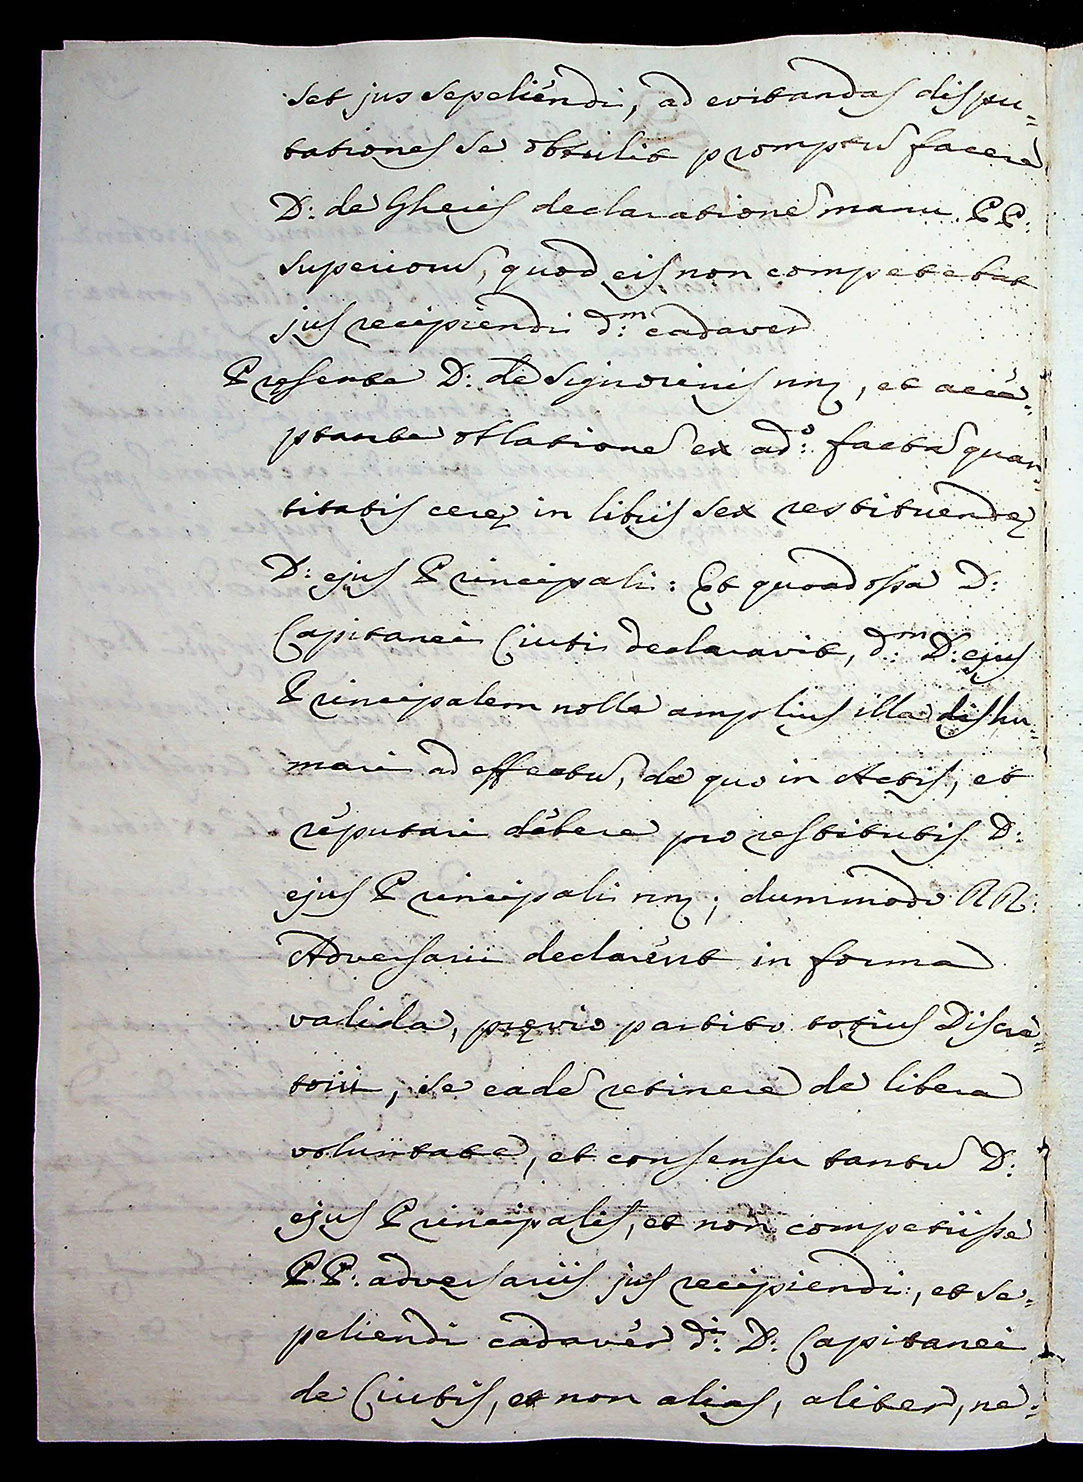 set jus sepeliendi, ad evitandas dispu=
tationes se obtulit promptũ facere
D: de Gheies declarationẽ manu PP.
superiorũ, quod eis non competebat
jus recipiendi d:m cadaver
Presente D: de Signorinis nnẹ, et acce=
ptante oblationẽ ex ad:o factã quan=
titatis cerẹ in libris sex restituendẹ
D: ejus Principali: Et quoad ossa D:
Capitanei Ciuti declaravit, d:m D: ejus
Principalem nolle amplius illa dishu=
mari ad effectũ, de quo in Actis, et
reputari debere pro restitutis D:
ejus Principali nnẹ; dummodo RR:
Adversarii declarent in forma
valida, prẹvio partito totius Discre=
torii, se eadẽ retinere de libera
voluntate, et consensu tantũ D:
ejus Principalis, et non competiisse
PP. adversariis jus recipiendi, et se=
peliendi cadaver d:i D: Capitanei
de Ciutis, et non alias, aliter, ne=